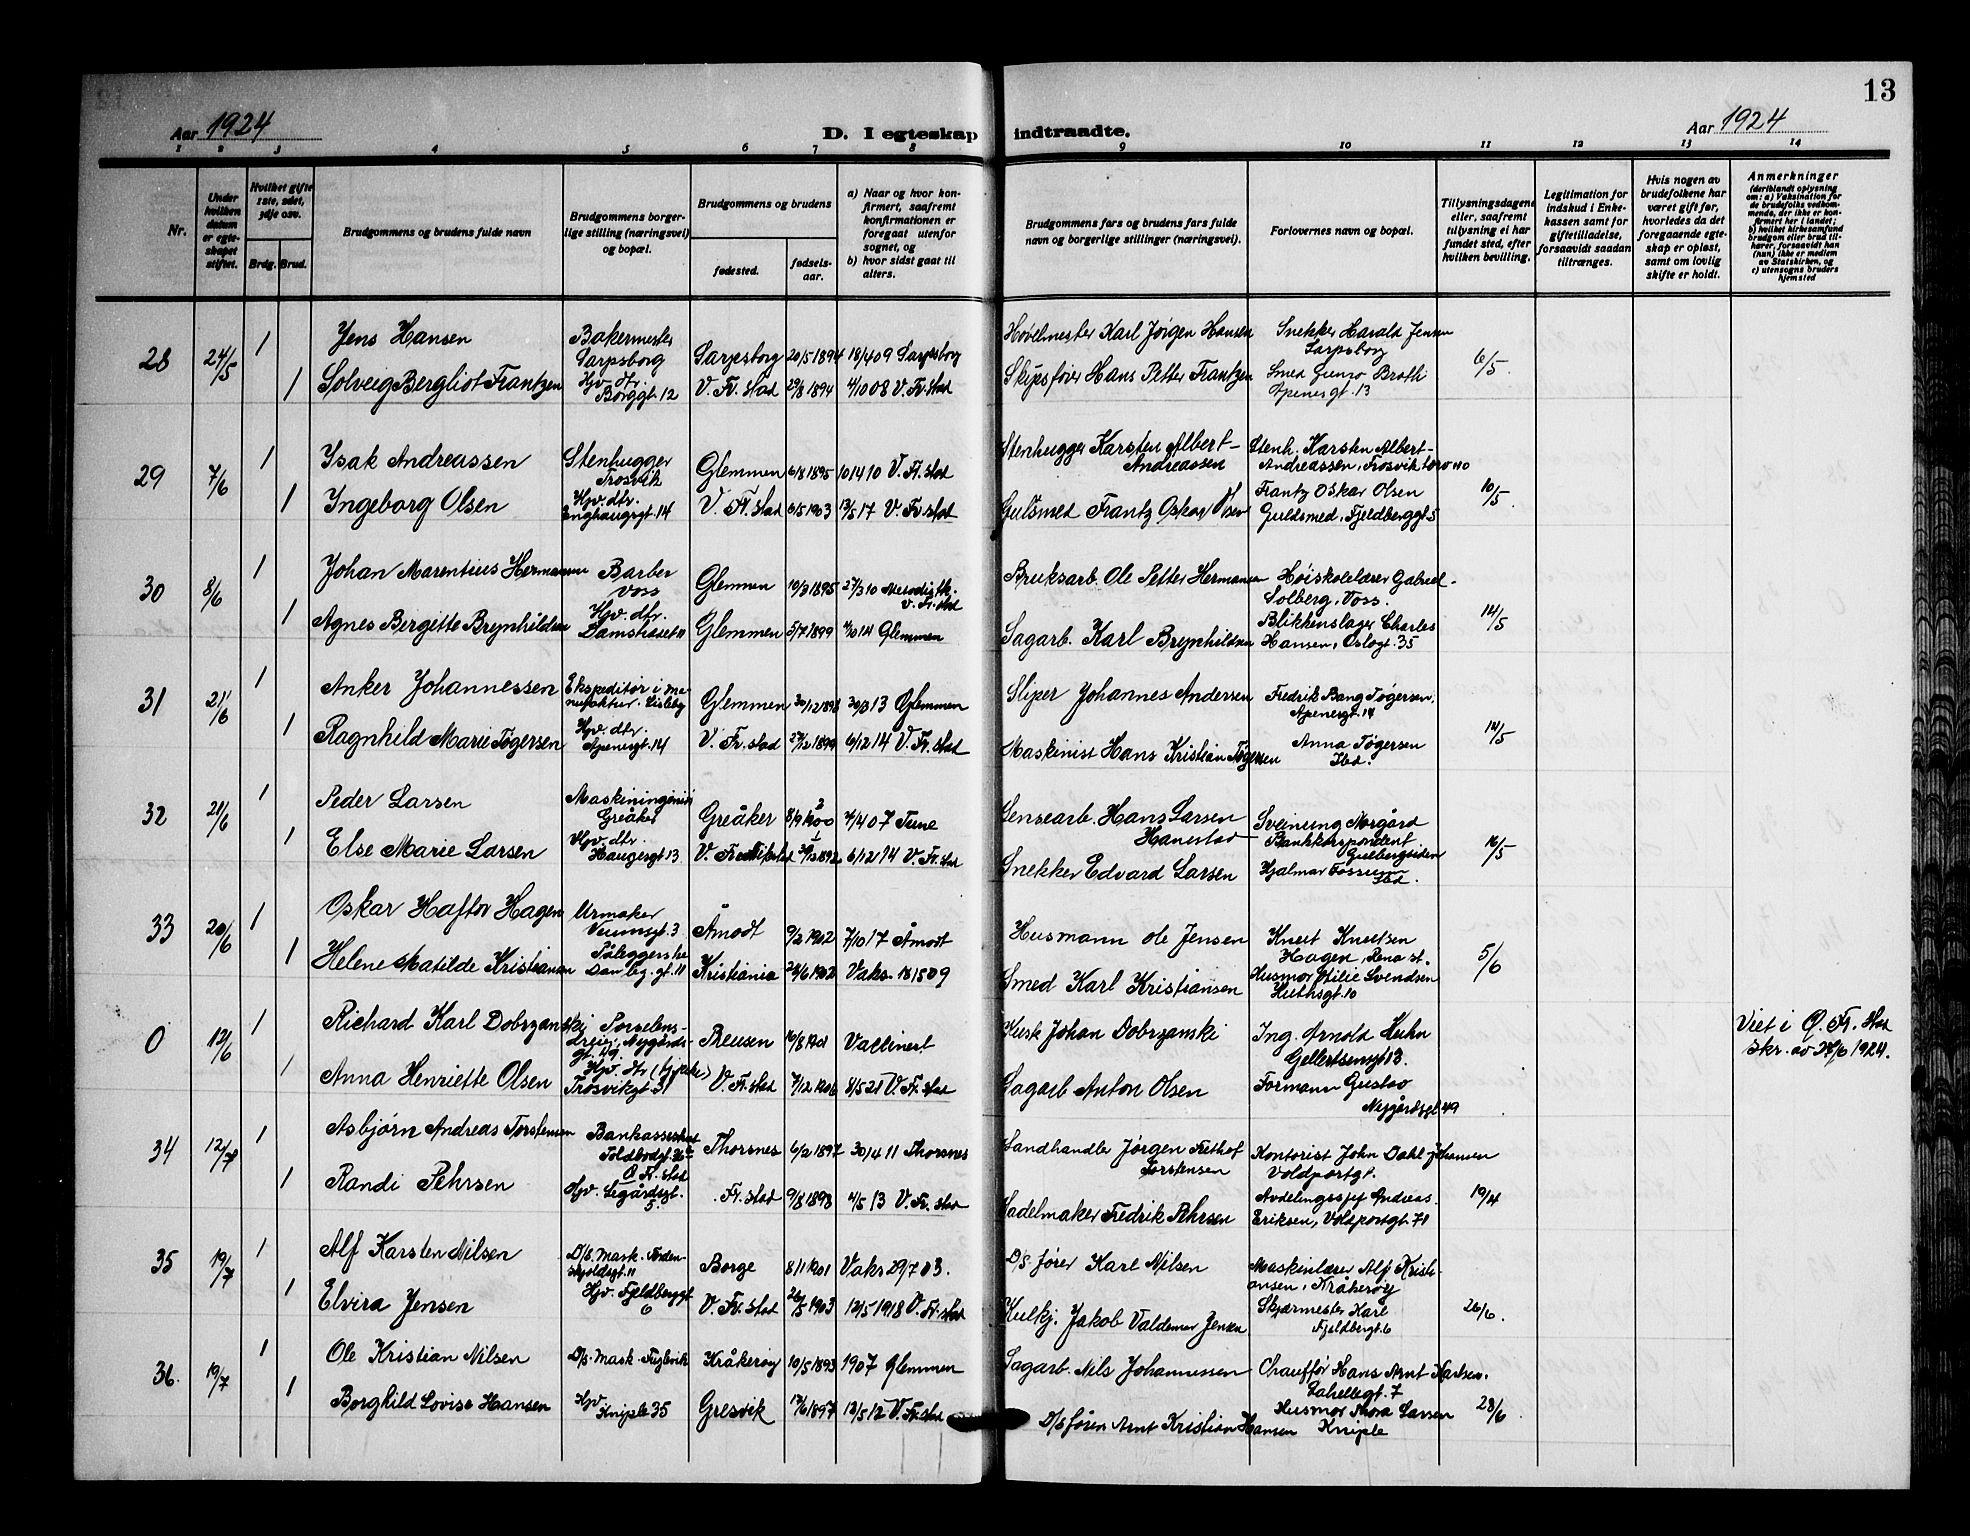 13
Aar 1924
D. I egteskap indtraadte.
Aar 1924
1 2 3 4 5 6 7 8 9 10 11 12 13 14
Nr.
Under hvilken datum er egteskapet stiftet.
Hvilket gifte 1ste, 2det, 3dje osv.
Brdg. Brud.
Brudgommens og brudens fulde navn
Brudgommens borgerlige stilling (næringsvei) og bopæl.
Brudgommens og brudens
fødested.
fødselsaar.
a) Naar og hvor konfirmert, saafremt konfirmationen er foregaat utenfor sognet, og
b) hvor sidst gaat til alters.
Brudgommens fars og brudens fars fulde navn og borgerlige stillinger (næringsvei).
Forlovernes navn og bopæl.
Tillysningsdagene eller, saafremt tillysning ei har fundet sted, efter hvilken bevilling.
Legitimation for indskud i Enkekassen samt for giftetilladelse, forsaavidt saadan tiltrænges.
Hvis nogen av brudefolkene har været gift før, hvorledes da det foregaaende egteskap er opløst, samt om lovlig skifte er holdt.
Anmerkninger
(deriblandt oplysning om: a) Vaksination for de brudefolks vedkommende, der ikke er konfirmert her i landet; b) hvilket kirkesamfund brudgom eller brud tilhører, forsaavidt han (hun) ikke er medlem av Statskirken, og c) utensogns bruders hjemsted
28 24/5 1 Jens Hansen Bakermester Sarpsborg Sarpsborg 20/5 1894 18/4 09 Sarpsborg Høvelmester Karl Jørgen Hansen Snekker Harald Jensen Sarpsborg 6/5.
1 Solveig Bergliot Frantzen Hjv. dtr. Borggt. 12 V. Fr. stad 29/8 1894 4/10 08 V. Fr. stad Skipsfører Hans Petter Frantzen Smed Apenesgt. 13
29 7/6 1 Isak Andreassen Stenhugger Trosvik Glemmen 6/8 1895 10 14 10 V. Fr. stad Stenhugger Karsten Albert Andreassen Stenh. Karsten Albert Andreassen, Trosvik 10/5
1 Ingeborg Olsen Hjv. dtr. Enghaugsgt. 14 V. Fr. stad 6/5 1903 13/5 17 V. Fr. stad Gulsmed Frantz Oskar Olsen Frantz Oskar Olsen Guldsmed, Fjeldberggt 5
30 8/6 1 Johan Marentius Hermansen Barber Voss Glemmen 10/3 1895 27/3 10 Metodistk. V. Fr. stad Bruksarb. Ole Petter Hermansen Høiskolelærer Gabriel Solberg, Voss. 14/5
1 Agnes Bergitte Brynhildsen Hjv. dtr. Damstræset 11 Glemmen 5/7 1899 4/10 14 Glemmen Sagarb. Karl Brynhildsen Blikkenslager Charles Hansen, Oslogt. 35
31 21/6 1 Anker Johannessen Ekspeditør i manufaktur. Lisleby Glemmen 30/12 1898 30/3 13 Glemmen Sliper Johannes Andersen Fredrik Bang Tøgersen, Apenesgt. 14 14/5
1 Ragnhild Marie Tøgersen Hjv. dtr. Apenesgt. 14 V. Fr. stad 27/12 1899 6/12 14 V. Fr. stad Maskinist Hans Kristian Tøgersen Anna Tøgersen Ibd.
32 21/6 1 Peder Larsen Maskiningeniør Greåker Greåker 8/9 1900 2 7/4 07 Tune Lensearb. Hans Larsen Hanestad Sveinung Norgård Bankkorspondent Gulbergsiden 16/5
1 Else Marie Larsen Hjv. dtr. Haugesgt 13 V. Fredrikstad 30/12 1892 1 6/12 14 V. Fr. stad Snekker Edvard Larsen Hjalmar Fossum Ibd.
33 20/6 1 Oskar Haftor Hagen Urmaker Veumsgt. 3 Åmodt 9/2 1902 7/10 17 Åmodt Husmann Ole Jensen Knut Knutsen Hagen, Rena st. 5/6
1 Helene Matilde Kristiansen Påleggerske Damleg. gt. 11 Kristiania 22/6 1902 Vaks. 18 15 09 Smed Karl Kristiansen Husmor Otilie Svendsen Huthsgt. 10
0 12/6 1 Richard Karl Dobrzanski Porselensdreier, Nygårdsgt. 49 Preusen 10/8 1901 Vaccinert Kusk Johan Dobrzanski Ing. Arnold Huhn Gellertsengt 13. Viet i Ø. Fr. stad Skr. av 27/6 1924.
1 Anna Henriette Olsen Hjv. dtr Trosvikgt 31 V. Fr. stad 7/12 1906 8/5 21 V. Fr. stad Sagarb Anton Olsen Formann Gustav Nygårdsgt. 49
34 12/7 1 Asbjørn Andreas Torstensen Bankassistent Toldbodgt. Ø. Fr. stad Thorsnes 6/2 1897 30/4 11 Thorsnes Landhandler Jørgen Frethof Torstensen Kontorist John Dahl Johansen Voldportgt. 19/4
1 Randi Pehrsen Hjv. Legårdsgt. 5. . Fr. stad 9/8 1898 4/5 13 V. Fr. stad Sadelmaker Fredrik Pehrsen Avdelingssjef Andreas Eriksen, Voldportgt. 71
35 19/7 1 Alf Karsten Nilsen D/S. Mask. Tordenskjoldsgt. 11 Borge 8/1 1901 Vaks 29/7 03. D/S. fører Karl Nilsen Maskinlærer Alf Kristiansen, Kråkerøy 26/6.
1 Elvira Jensen Hjv. Fjeldberggt 6 V. Fr. stad 26/5 1903 12/5 1918 V. Fr. stad Kulkj. Jakob Valdemar Jensen Skjærmester Karl Fjeldbergt. 6
36. 19/7 1 Ole Kristian Nilsen D/S. Mask. Fuglevik Kråkerøy 10/5 1893 1907 Glemmen Sagarb. Nils Johannessen Chauffør Hans Arnt Karlsen. Lahellegt. 7 28/6
1 Borghild Lovise Hansen Hjv. Kniple 35 Gresvik 17/6 1897 12/5 12 V. Fr. stad D/S fører Arnt Kristian Hansen Husmor Thora Larsen Kniple